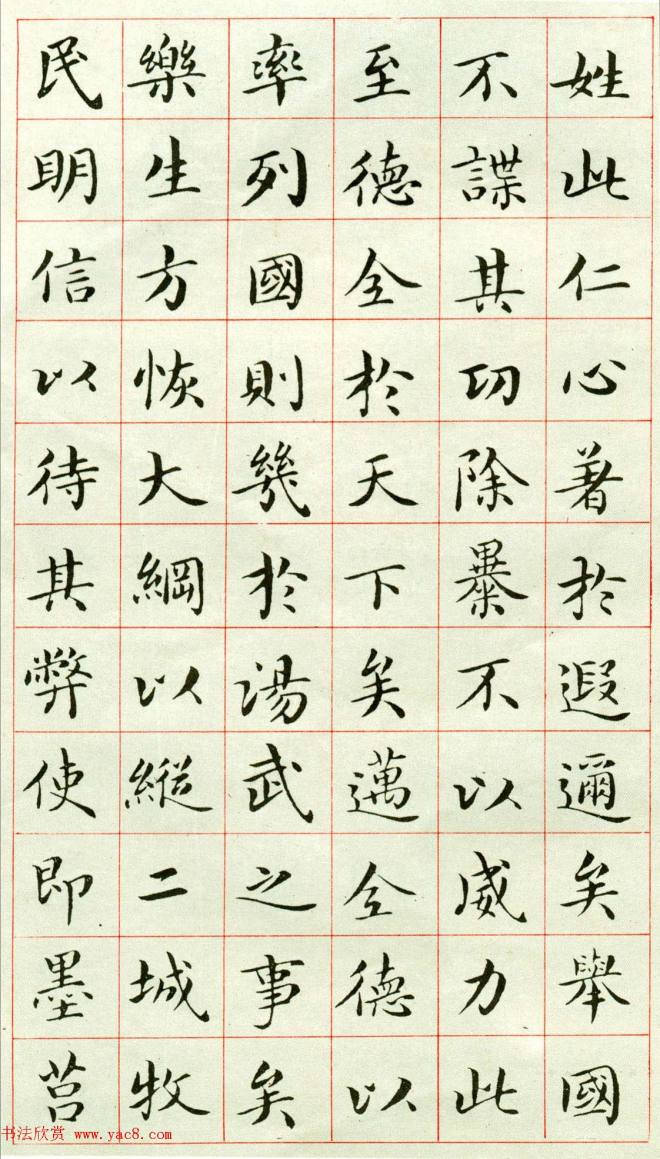 姓此仁心著於遐邇矣舉國
不謀其功除暴不以威力此
至德全於天下矣邁全德以
率列國則幾於湯武之事矣
樂生方恢大綱以縱二城牧
民明信以待其弊使即墨莒
书法欣赏 www.yac8.com